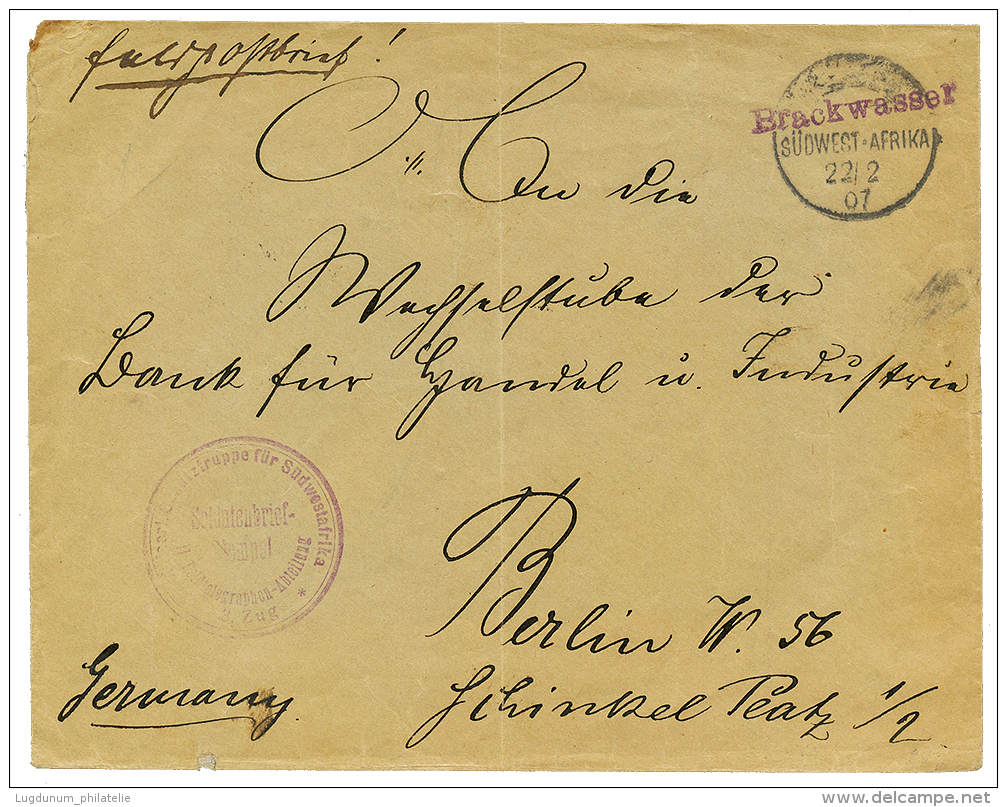 Feldpostbrief!
Brackwasser
SÜDWEST-AFRIKA
22/2
07
An die
Wechselstube der
Bank für Handel u. Industrie
Schutztruppe für Südwestafrika
Soldatenbrief-
Stempel
Telegraphen-Abteilung
2. Zug
Berlin W. 56
Schinkel Platz 1/2
Germany
Lugdunum_philatelie
www.delcampe.net